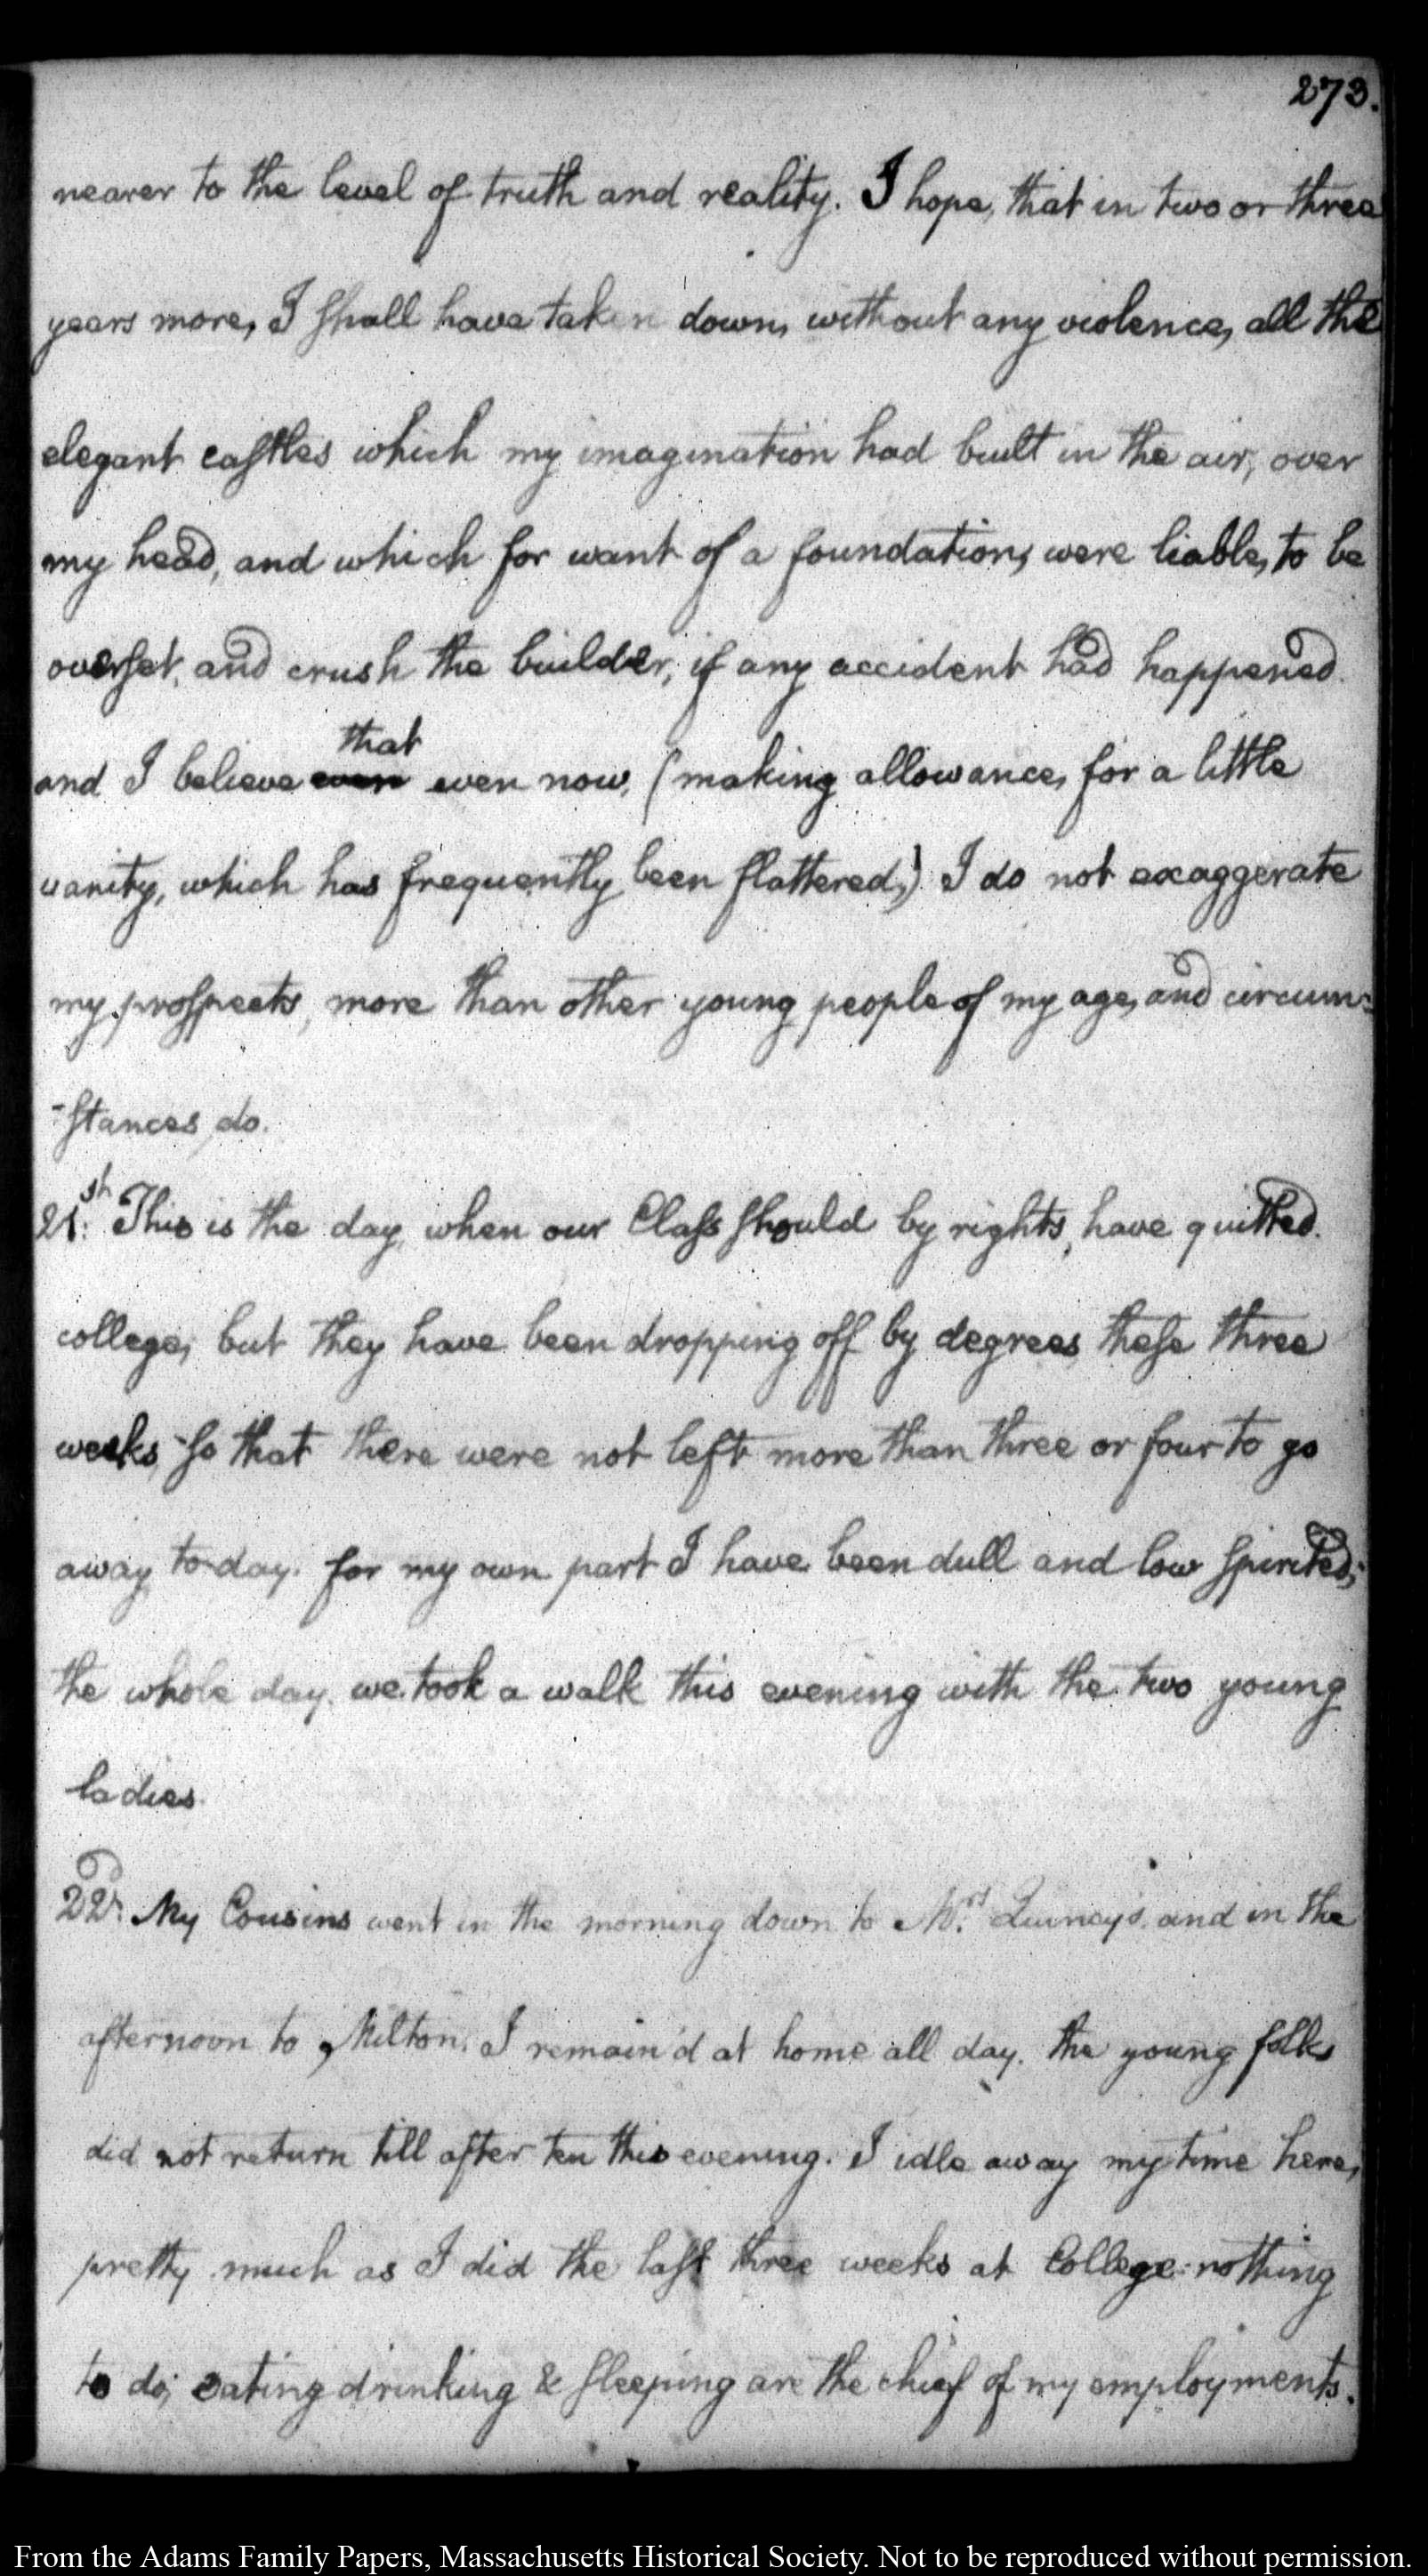 273.
nearer to the level of truth and reality. I hope, that in two or three
years more, I shall have taken down, without any violence, all the
elegant castles which my imagination had built in the air, over
my head, and which for want of a foundation, were liable, to be
overset, and crush the builder, if any accident had happened.
that
and I believe even even now, (making allowance, for a little
vanity, which has frequently been flattered,) I do not exaggerate
my prospects, more than other young people of my age, and circum=
-stances, do.
21st: This is the day, when our Class should by rights, have quitted.
college, but they have been dropping off by degrees these three
weeks, so that there were not left more than three or four to go
away, to-day. for my own part I have been dull and low spirited,
the whole day. we took a walk this evening with the two young
ladies.
22d: My Cousins went in the morning down to Mrs. Quincy's. and in the
afternoon to Milton. I remain'd at home all day. the young folks
did not return till after ten this evening. I idle away my time here,
pretty much as I did the last three weeks at College: nothing
to do; eating drinking & sleeping are the chief of my employments.
From the Adams Family Papers, Massachusetts Historical Society. Not to be reproduced without permission.